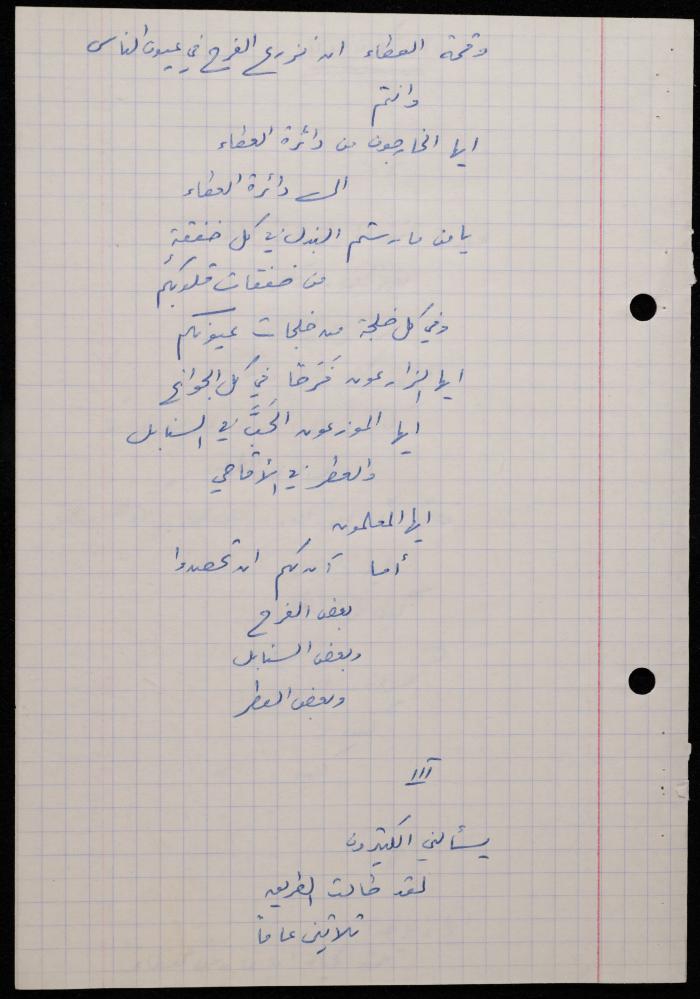 وقمة العطاء ان نزرع الفرح في عيون الناس
وانتم
ايها الخارجون من دائرة العطاء
الى دائرة العطاء
يا من مارستم البذل في كل خفقة
من خفقات قلوبكم
وفي كل خلجة من خلجات عيونكم
ايها الزارعون فَرَحًا في كل الجوانح
ايها الموزعون الحَبَّ في السنابل
والعطر في الأقاحي
ايها المعلمون
أما آن لكم ان تحصدوا
بعض الفرح
وبعض السنابل
وبعض العطر
III
يسألني الكثيرون
لقد طالت الطريق
ثلاثين عاماً